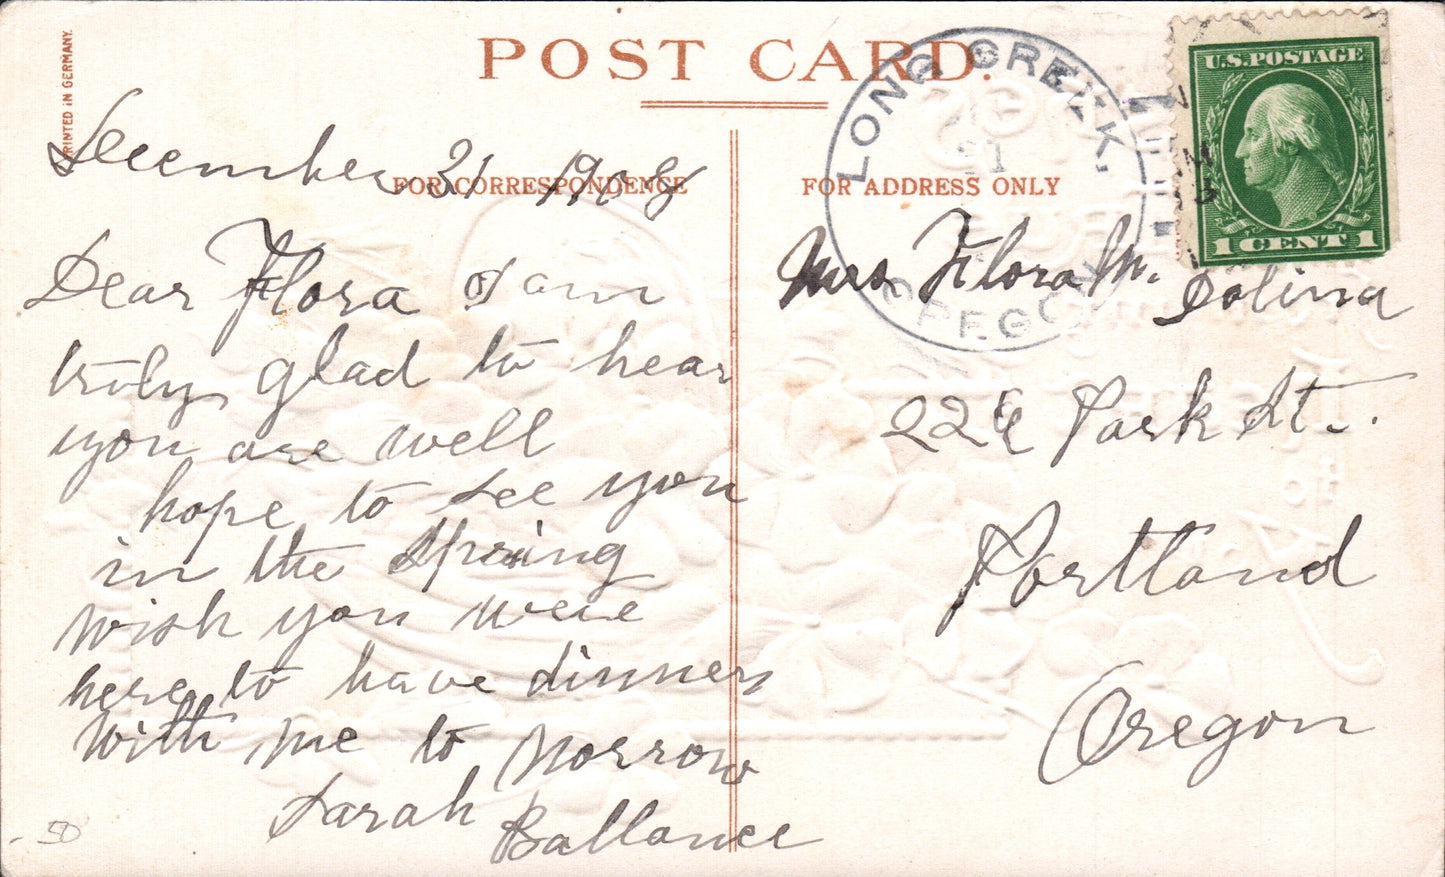 PRINTED IN GERMANY.
POST CARD.
FOR CORRESPONDENCE
FOR ADDRESS ONLY
LONG CREEK,
21
OREGON
U.S.POSTAGE
1 CENT 1
December 31 1908
Dear Flora I am
truly glad to hear
you are well
hope to see you
in the Spring
wish you were
here to have dinner
with me to morrow
Sarah Ballance
Mrs. Flora M.
Park St.
Portland
Oregon
50